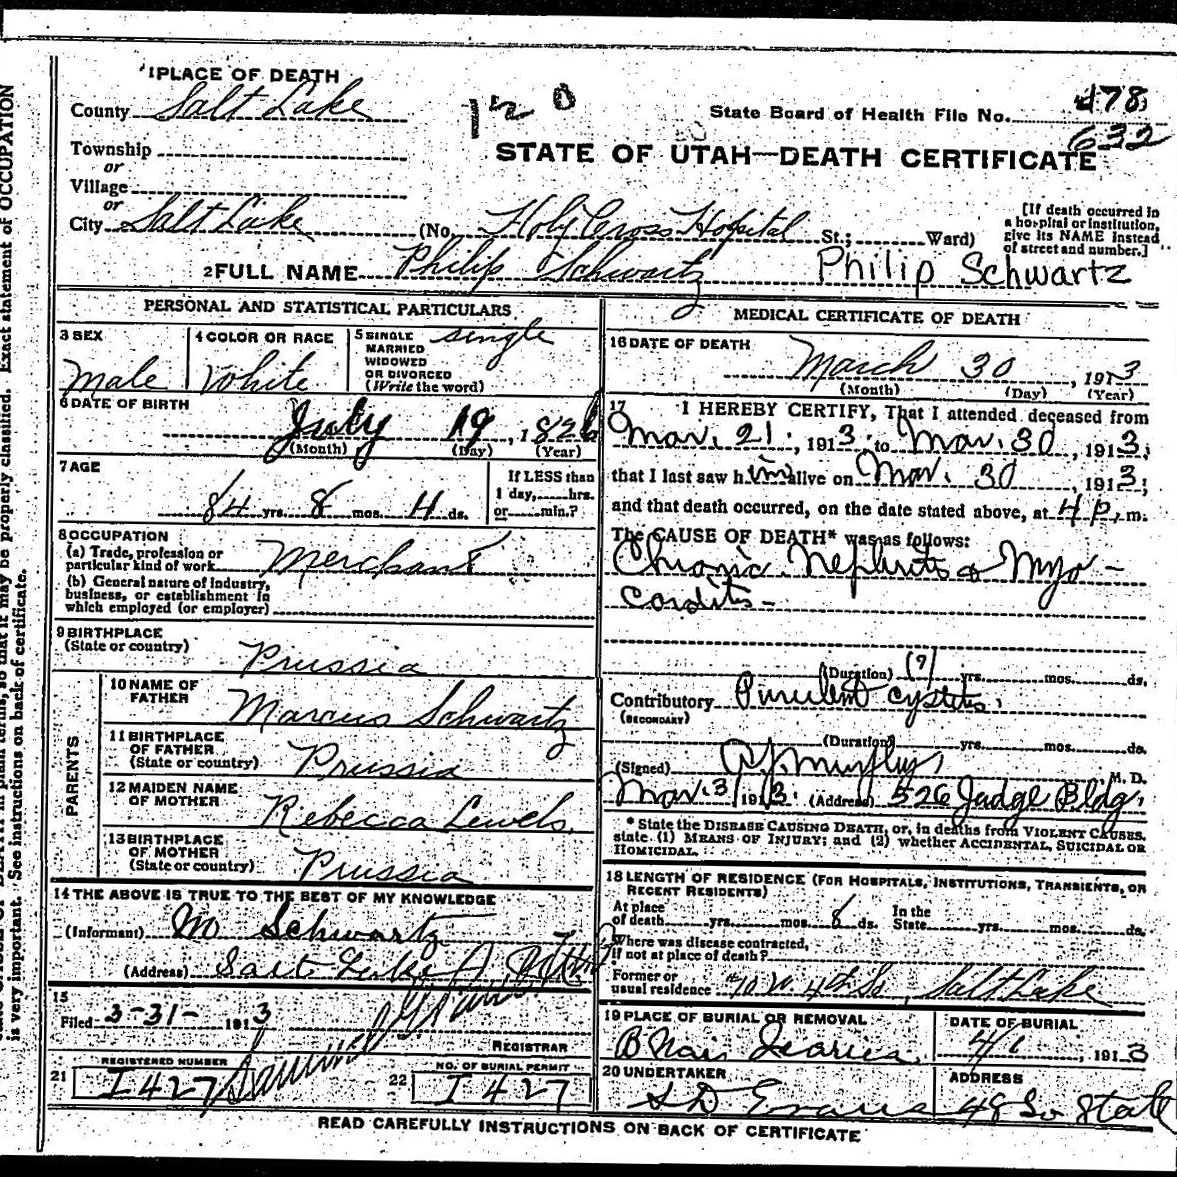 1 PLACE OF DEATH
County Salt Lake
120
State Board of Health File No. 478
632
STATE OF UTAH—DEATH CERTIFICATE
Township
or
Village
or
City Salt Lake (No. Holy Cross Hospital St.; Ward)
[If death occurred in a hospital or institution, give its NAME instead of street and number.]
2 FULL NAME Philip Schwartz Philip Schwartz
PERSONAL AND STATISTICAL PARTICULARS
3 SEX
Male
4 COLOR OR RACE
White
5 SINGLE MARRIED WIDOWED OR DIVORCED (Write the word)
single
6 DATE OF BIRTH
July 19, 1826
(Month) (Day) (Year)
7 AGE
84 yrs. 8 mos. 4 ds.
If LESS than
1 day, hrs.
or min.?
8 OCCUPATION
(a) Trade, profession or
particular kind of work Merchant
(b) General nature of industry,
business, or establishment in
which employed (or employer)
9 BIRTHPLACE
(State or country)
Prussia
PARENTS
10 NAME OF
FATHER
Marcus Schwartz
11 BIRTHPLACE
OF FATHER
(State or country)
Prussia
12 MAIDEN NAME
OF MOTHER
Rebecca Lewels
13 BIRTHPLACE
OF MOTHER
(State or country)
Prussia
14 THE ABOVE IS TRUE TO THE BEST OF MY KNOWLEDGE
(Informant) M Schwartz
(Address) Salt Lake
15
Filed 3-31- 1913
REGISTRAR
REGISTERED NUMBER
21 I427
NO. OF BURIAL PERMIT
22 I427
MEDICAL CERTIFICATE OF DEATH
16 DATE OF DEATH
March 30, 1913
(Month) (Day) (Year)
17 I HEREBY CERTIFY, That I attended deceased from
Mar. 21, 1913, to Mar. 30, 1913,
that I last saw him alive on Mar. 30, 1913;
and that death occurred, on the date stated above, at 4 P. m.
The CAUSE OF DEATH* was as follows:
Chronic Nephritis & Myo-
carditis-
(Duration) (?) yrs. mos. ds.
Contributory Purulent cystitis.
(SECONDARY)
(Duration) yrs. mos. ds.
(Signed) Murphy, M. D.
Mar. 31 1913. (Address) 526 Judge Bldg.
* State the DISEASE CAUSING DEATH, or, in deaths from VIOLENT CAUSES,
state (1) MEANS OF INJURY; and (2) whether ACCIDENTAL, SUICIDAL OR
HOMICIDAL.
18 LENGTH OF RESIDENCE (FOR HOSPITALS, INSTITUTIONS, TRANSIENTS, OR
RECENT RESIDENTS)
At place
of death yrs. mos. 8 ds.
In the
State yrs. mos. ds.
Where was disease contracted,
if not at place of death?
Former or
usual residence 70 W 4th So, Salt Lake
19 PLACE OF BURIAL OR REMOVAL
B Nai Israel
DATE OF BURIAL
4/1, 1913
20 UNDERTAKER
S D Evans
ADDRESS
48 So State
READ CAREFULLY INSTRUCTIONS ON BACK OF CERTIFICATE
so that it may be properly classified. Exact statement of OCCUPATION
is very important. See instructions on back of certificate.